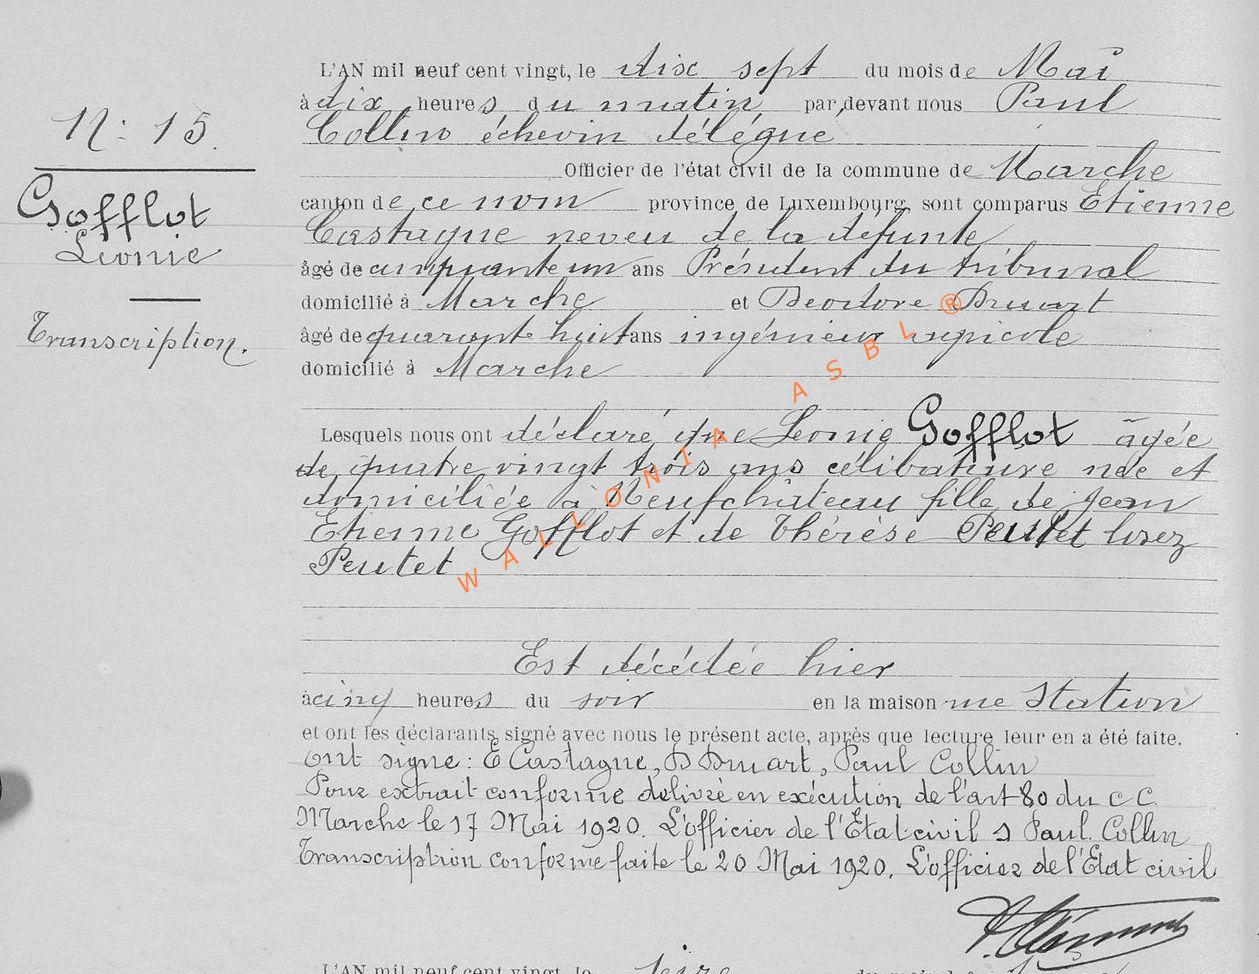 L'AN mil neuf cent vingt, le dix sept du mois de Mai
à dix heures du matin, par devant nous Paul
Collin échevin délégué
N: 15.
Officier de l'état civil de la commune de Marche
canton de ce nom province de Luxembourg, sont comparus Etienne
Gofflot
Léonie
Castagne neveu de la défunte
âgé de cinquante un ans Président du tribunal
domicilié à Marche et Deodore Druart
Transcription.
âgé de quarante huit ans ingénieur agricole
domicilié à Marche
Lesquels nous ont déclaré que Léonie Gofflot âgée
de quatre vingt trois ans célibataire née et
domiciliée à Neufchâteau fille de Jean
Etienne Gofflot et de Thérèse Peutet lisez
Peutet
WALLONIA ASBL ®
Est décédée hier
à cinq heures du soir en la maison rue Station
et ont les déclarants signé avec nous le présent acte, après que lecture leur en a été faite.
ont signé: E Castagne, D Druart, Paul Collin
Pour extrait conforme délivré en exécution de l'art 80 du C C.
Marche le 17 Mai 1920. L'officier de l'Etat civil s Paul Collin
Transcription conforme faite le 20 Mai 1920. L'officier de l'Etat civil
L'AN mil neuf cent vingt, le